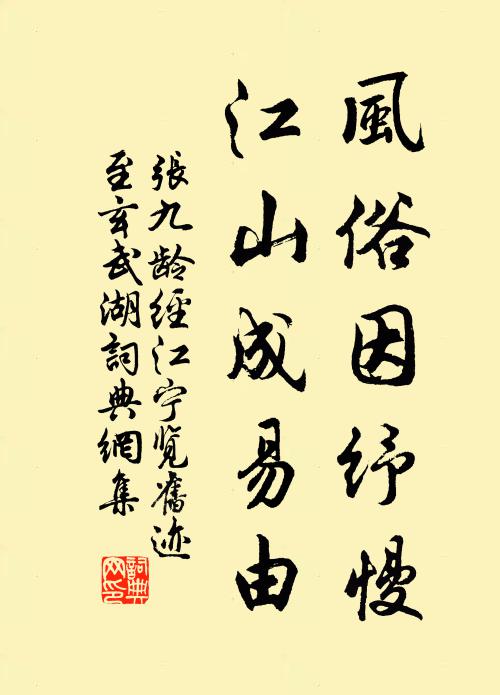 風俗因紓慢
江山成易由
張九龄經江宁览舊迹
至玄武湖詞典網集
詞典
网印